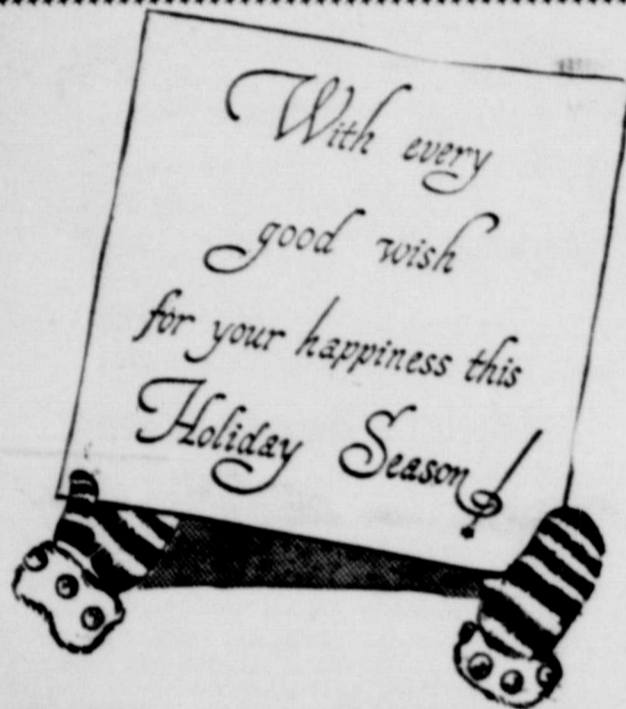 With every
good wish
for your happiness this
Holiday Season!